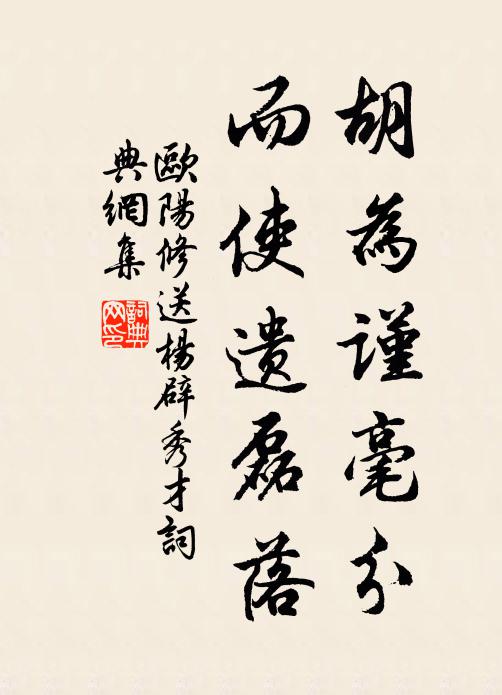 胡為謹毫分
而使遺磊落
歐陽修送楊辟秀才詞
典網集
詞典網印